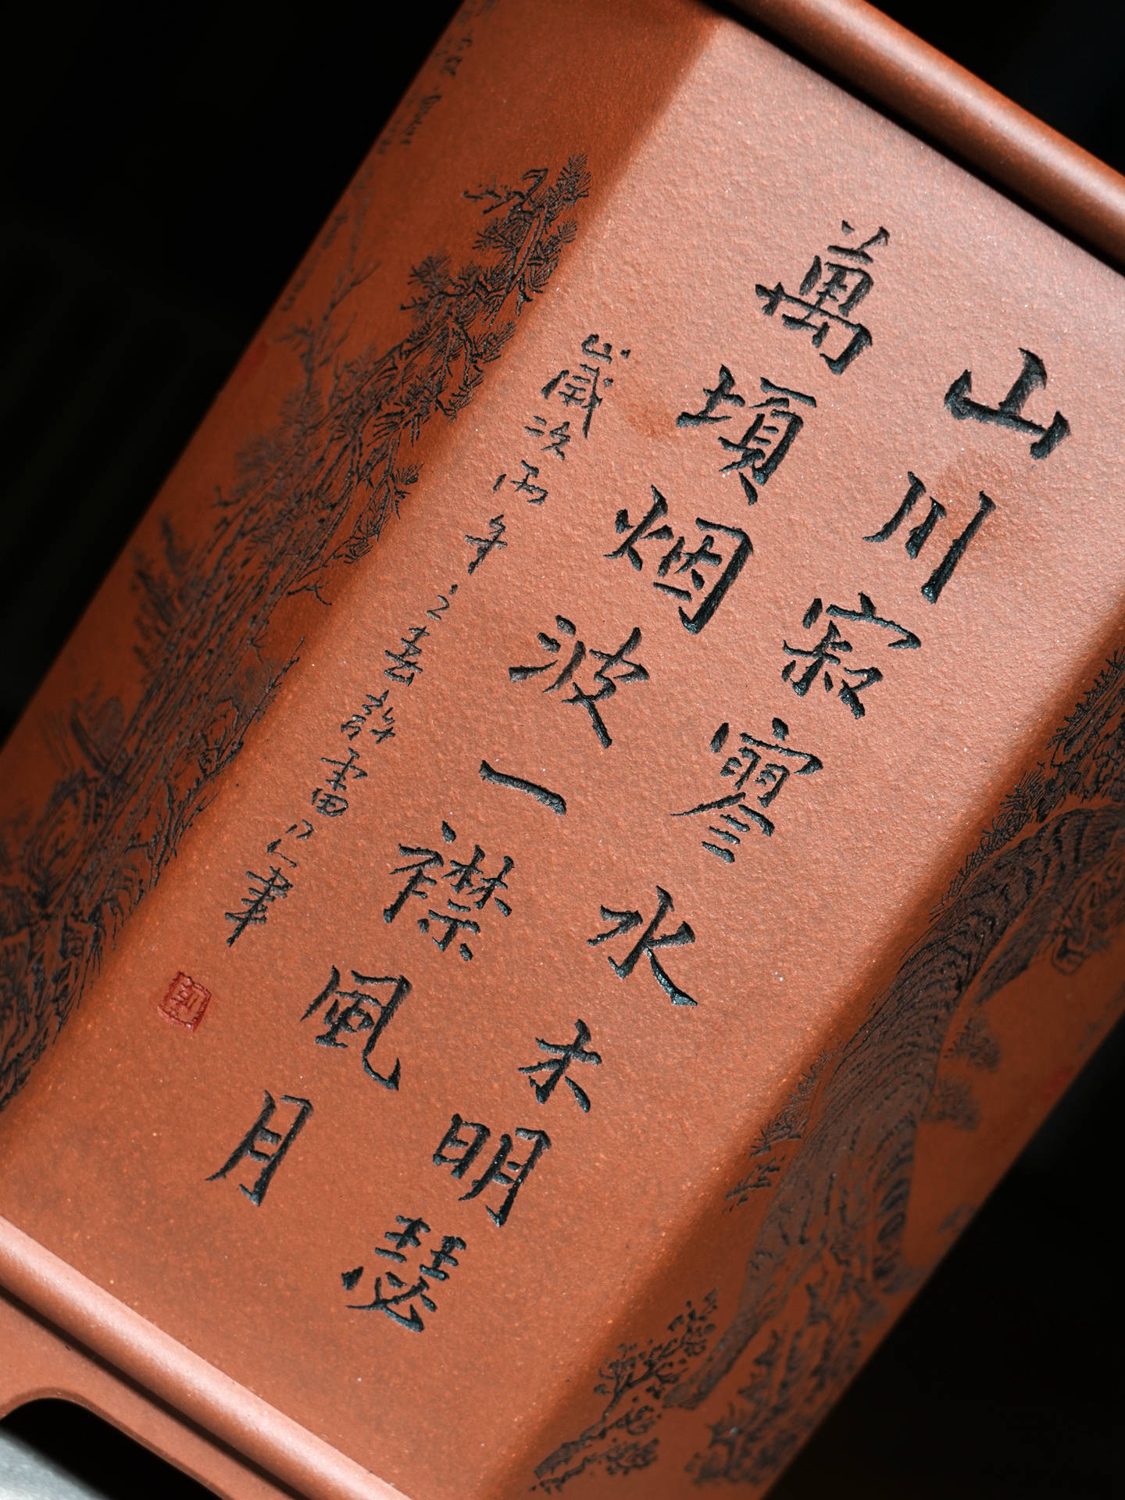 山川寂寥水木明瑟
萬頃烟波一襟風月
歲次丙午之春